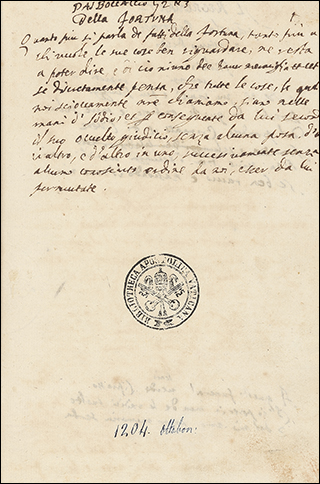 DAL BOCCACCIO G2 N3
Della FORTUNA
Quanto più si parla de' fatti della fortuna, tanto più a
chi vuole le sue cose ben riguardare, ne resta
a poter dire: e di ciò niuno dee haver maraviglia
se discretamente pensa, che tutte le cose, le quali
noi scioccamente nre chiamiamo, siano nelle
mani d'
il suo occulto giudicio, senza alcuna posa, d'uno
in altro, e d'altro in uno, successivamente senza
alcuno conosciuto ordine da noi, esser da lui
permutate.
BIBLIOTHECA APOSTOLICA VATICANA
1204. ottobon.